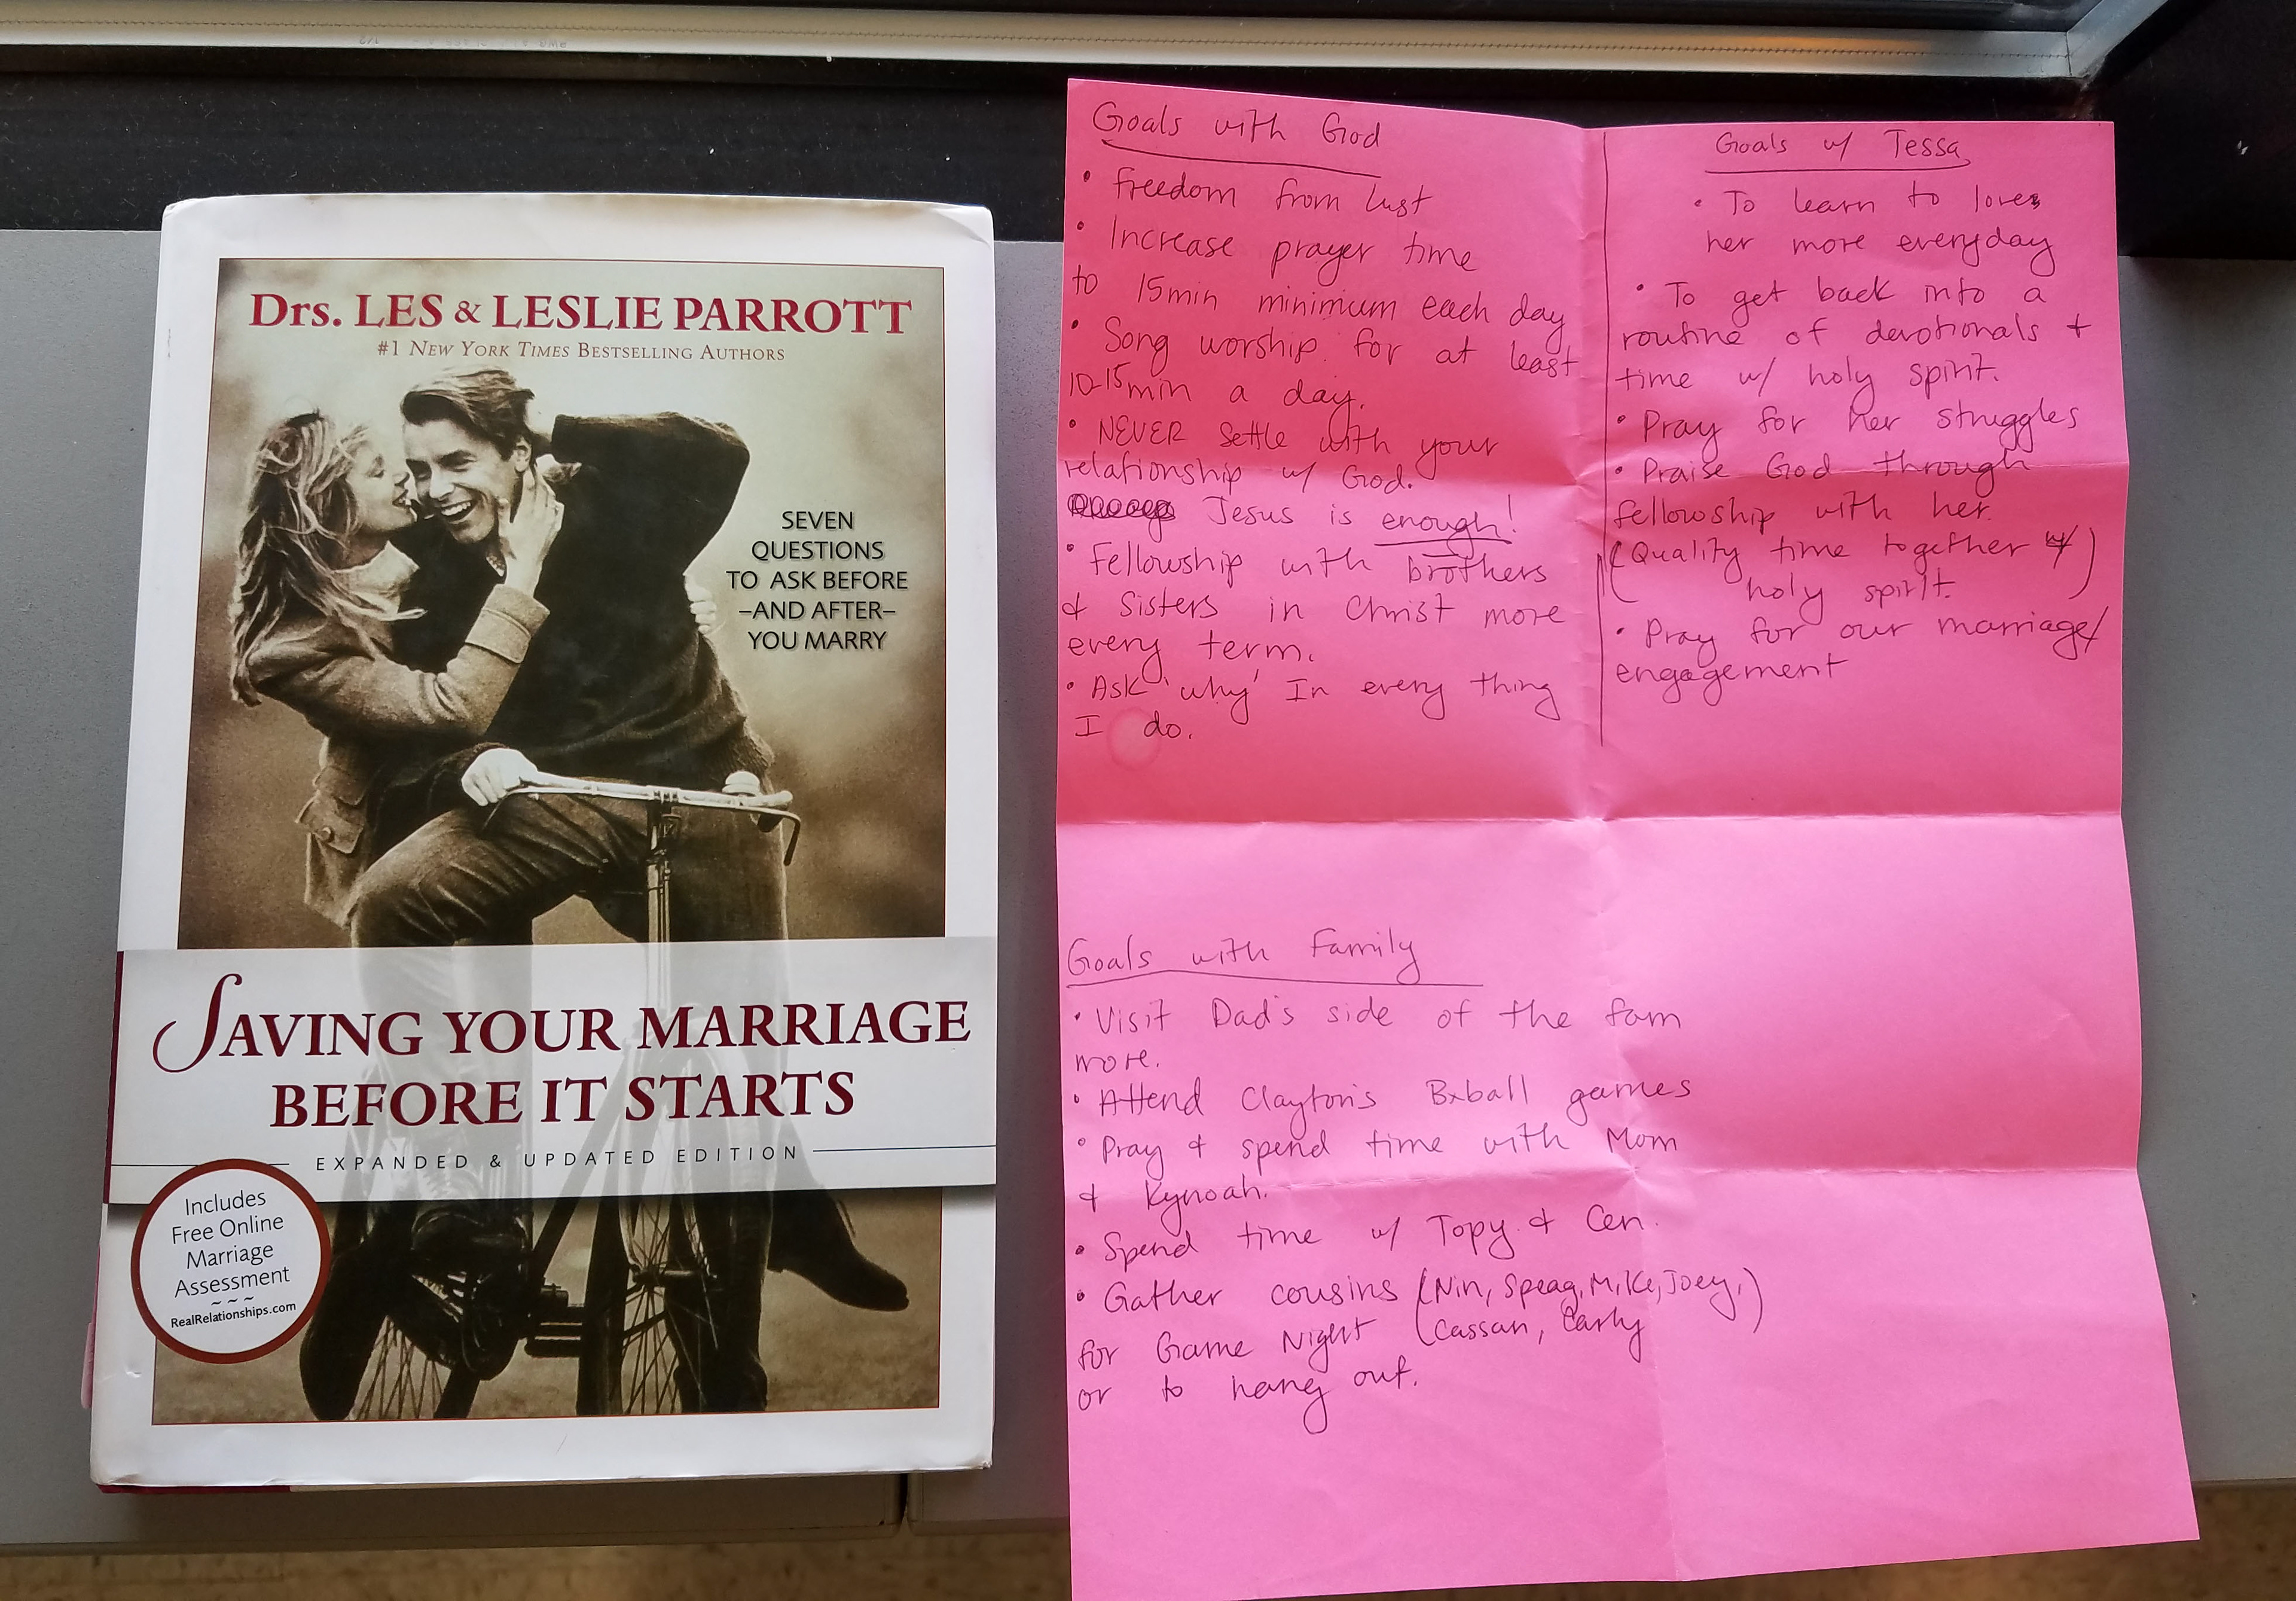 Drs. LES & LESLIE PARROTT
#1 NEW YORK TIMES BESTSELLING AUTHORS
SEVEN
QUESTIONS
TO ASK BEFORE
–AND AFTER–
YOU MARRY
SAVING YOUR MARRIAGE
BEFORE IT STARTS
EXPANDED & UPDATED EDITION
Includes
Free Online
Marriage
Assessment
~ ~ ~
RealRelationships.com
Goals with God
• Freedom from lust
• Increase prayer time
to 15min minimum each day
• Song worship for at least
10-15min a day.
• NEVER settle with your
relationship w/ God.
Jesus is enough!
• Fellowship with brothers
& Sisters in Christ more
every term.
• Ask 'why' In every thing
I do.
Goals w/ Tessa
• To learn to love
her more everyday
• To get back into a
routine of devotionals +
time w/ holy spirit.
• Pray for her struggles
• Praise God through
fellowship with her.
(Quality time together w/
holy spirit.)
• Pray for our marriage/
engagement
Goals with Family
• Visit Dad's side of the fam
more.
• Attend Clayton's Bxball games
• Pray & spend time with Mom
& Kynoah.
• Spend time w/ Topy & Cen.
• Gather cousins (Nin, Speag, Mike, Joey,
for Game Night Cassan, Carly)
or to hang out.